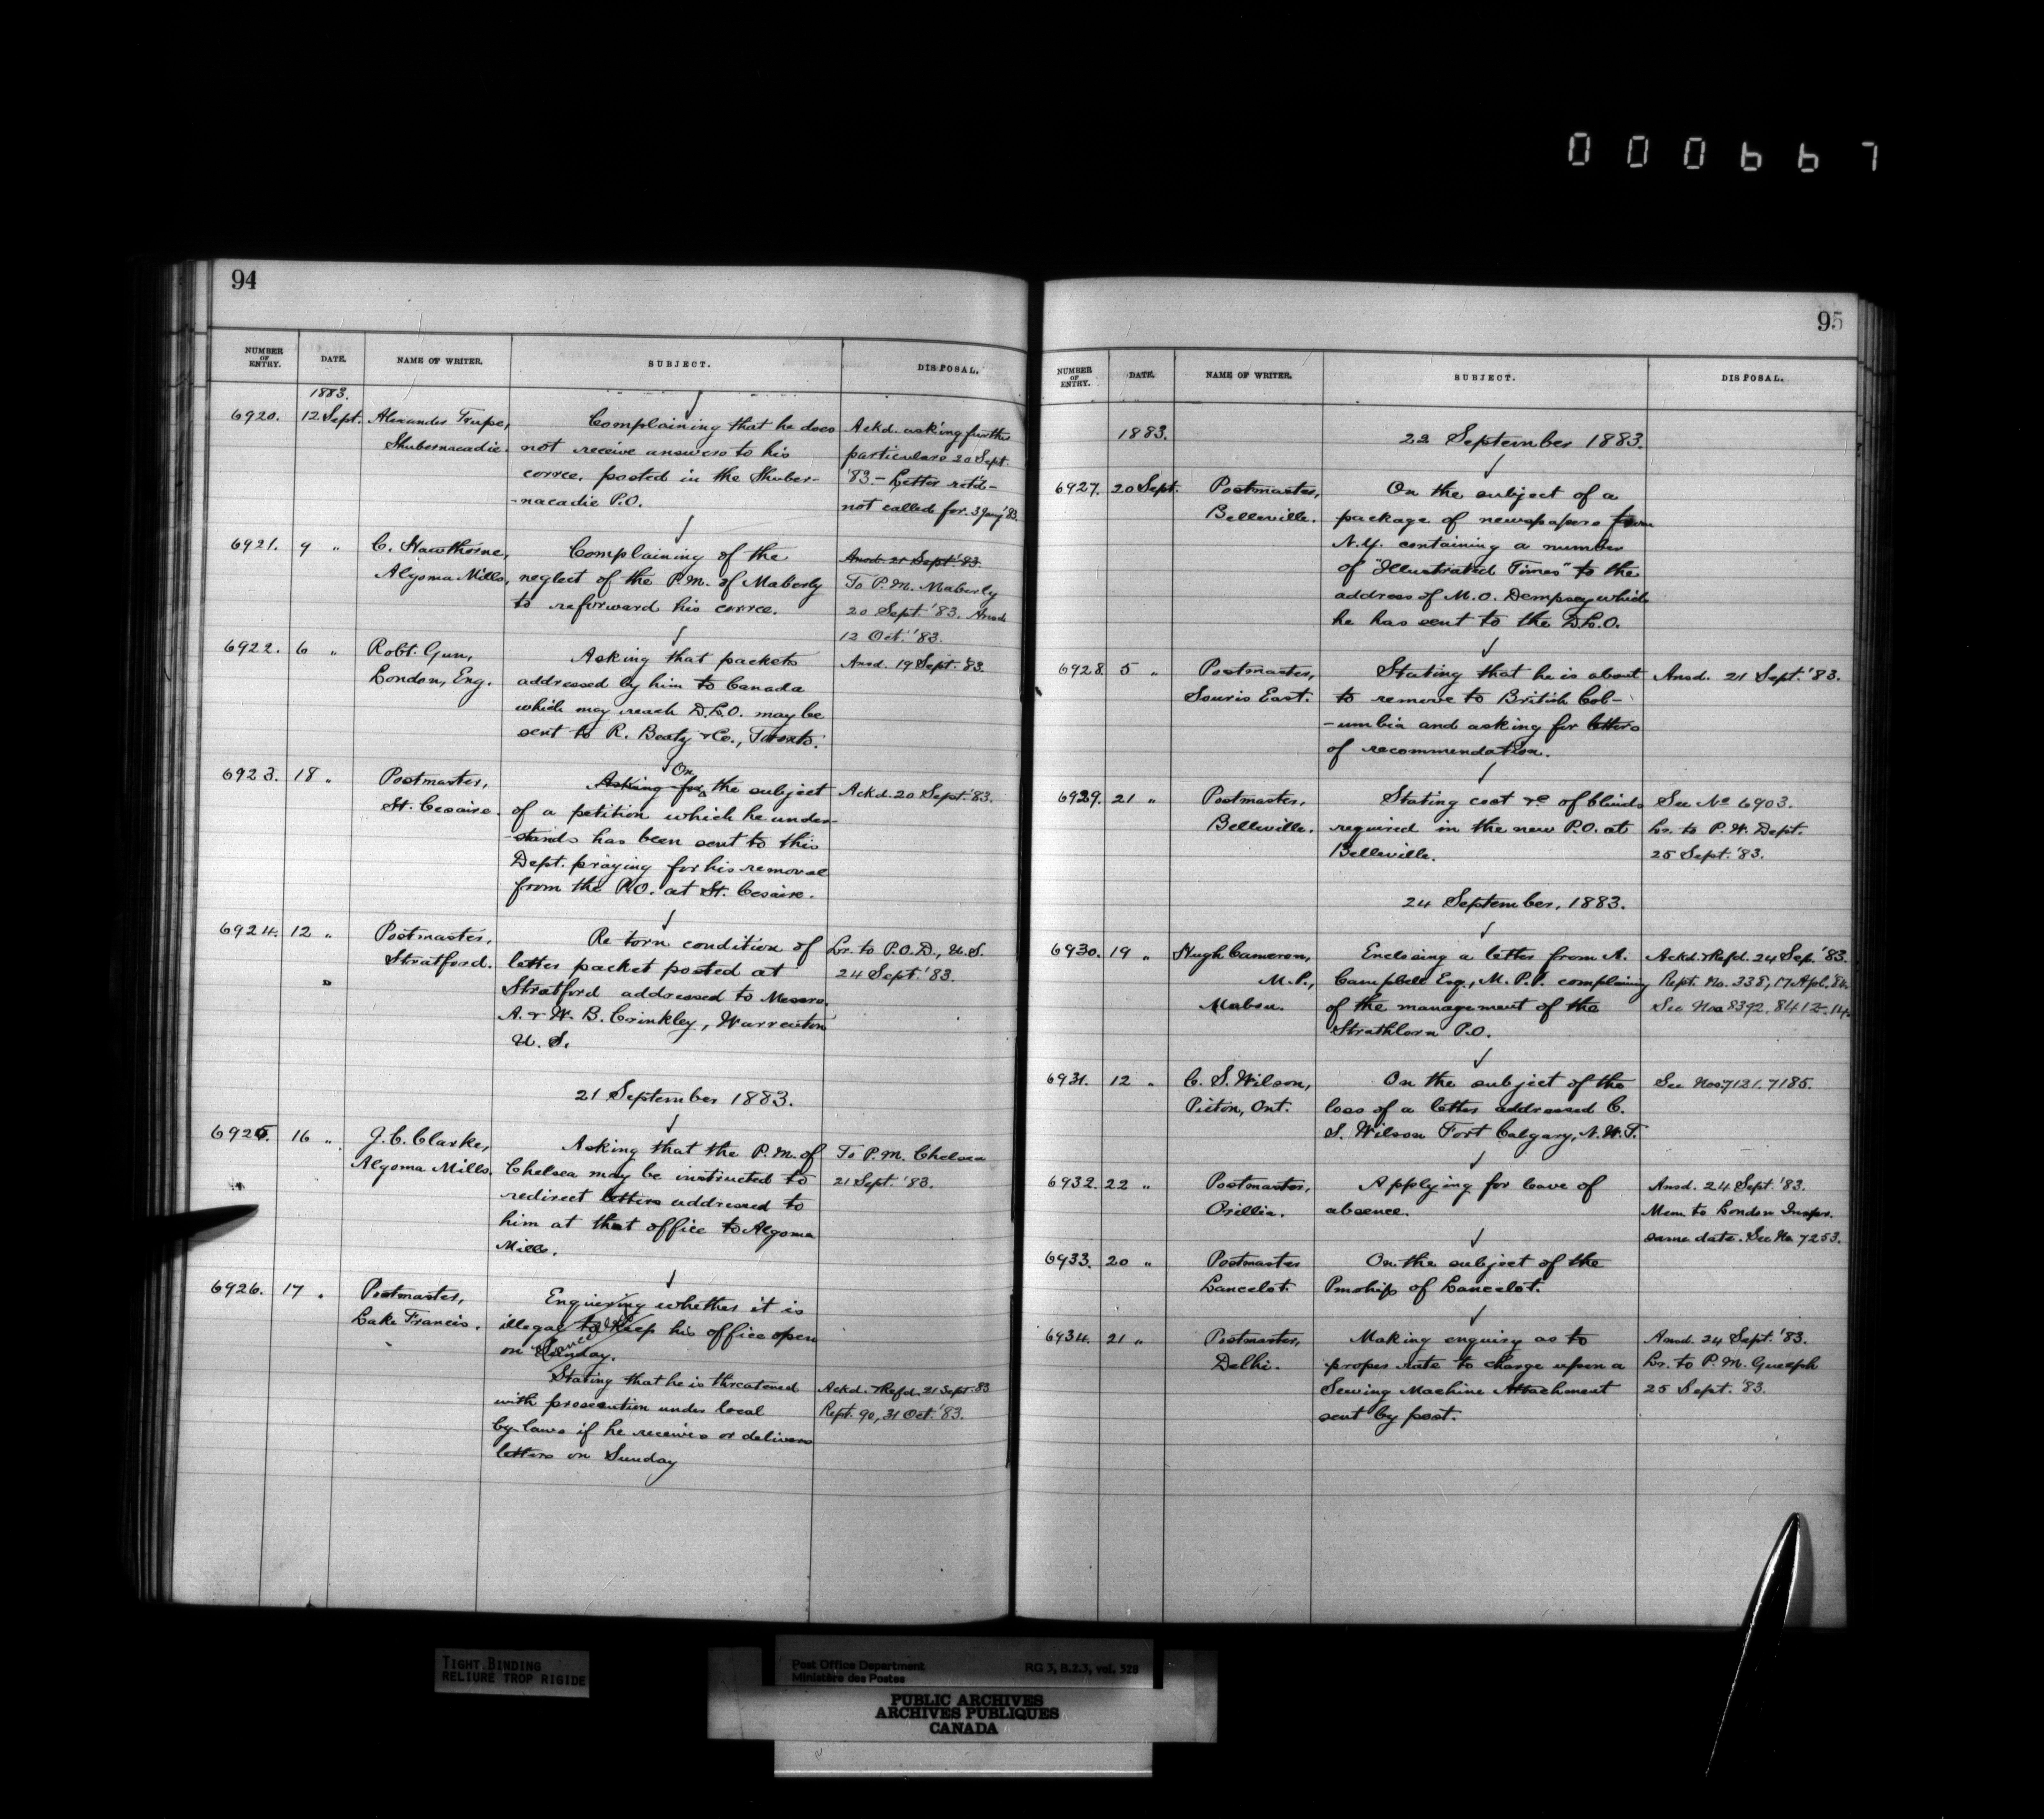 000667
94
NUMBER OF ENTRY. DATE. NAME OF WRITER. SUBJECT. DISPOSAL.
1883.
6920. 12 Sept. Alexander Complaining that he does Ackd. asking further
Shubernacadie. not receive answers to his particulars 20 Sept.
corrce. posted in the Shuber- '83. - Letter retd -
-nacadie P.O. not called for. 3 Jany '83.
6921. 9 " C. Hawthorne, Complaining of the Ansd. 21 Sept. '83.
Algoma Mills, neglect of the P.M. of Maberly To P.M. Maberly
to reforward his corrce. 20 Sept '83. Ansd
12 Oct. '83.
6922. 6 " Robt. Gun, Asking that packets Ansd. 19 Sept. '83.
London, Eng. addressed by him to Canada
which may reach D.L.O. may be
sent to R. Beaty & Co., Toronto.
6923. 18 " Postmaster, Asking for On the subject Ackd. 20 Sept. '83.
St. Cesaire. of a petition which he under-
-stands has been sent to this
Dept. praying for his removal
from the P.O. at St. Cesaire.
6924. 12 " Postmaster, Re torn condition of Lr. to P.O.D., U.S.
Stratford. letter packet posted at 24 Sept. '83.
Stratford addressed to Messrs.
A. & W. B. Crinkley, Warrenton
U. S.
21 September 1883.
6925. 16 " J. C. Clarke, Asking that the P.M. of To P.M. Chelsea
Algoma Mills. Chelsea may be instructed to 21 Sept. '83.
redirect letters addressed to
him at that office to Algoma
Mills.
6926. 17 " Postmaster, Enquiring whether it is
Lake Francis. illegal to keep his office open
on Sunday.
Stating that he is threatened Ackd. & Refd. 21 Sept. 83
with prosecution under local Rept. 90, 31 Oct. '83.
by-laws if he receives or delivers
letters on Sunday
95
NUMBER OF ENTRY. DATE. NAME OF WRITER. SUBJECT. DISPOSAL.
1883. 22 September 1883.
6927. 20 Sept. Postmaster, On the subject of a
Belleville. package of newspapers from
N.Y. containing a number
of "Illustrated Times" to the
address of M. O. Dempsey which
he has sent to the D.L.O.
6928. 5 " Postmaster, Stating that he is about Ansd. 21 Sept. '83.
Souris East. to remove to British Col-
-umbia and asking for letters
of recommendation.
6929. 21 " Postmaster, Stating cost &c of blinds See No 6903.
Belleville. required in the new P.O. at Lr. to P.W. Dept.
Belleville. 25 Sept. '83.
24 September, 1883.
6930. 19 " Hugh Cameron, Enclosing a letter from A. Ackd. & Refd. 24 Sep. '83.
M.P., Campbell Esq., M.P.P. complaining Rept. No. 338, 17 Apl. '84.
Mabou. of the management of the See Nos 8392. 8412.
Strathlorn P.O.
6931. 12 " C. S. Wilson, On the subject of the See Nos. 7121. 7185.
Picton, Ont. loss of a letter addressed C.
S. Wilson Fort Calgary, N.W.T.
6932. 22 " Postmaster, Applying for leave of Ansd. 24 Sept. '83.
Orillia. absence. Mem. to London Inspr.
same date. See No. 7253.
6933. 20 " Postmaster On the subject of the
Lancelot. Pmship of Lancelot.
6934. 21 " Postmaster, Making enquiry as to Ansd. 24 Sept. '83.
Delhi. proper rate to charge upon a Lr. to P.M. Guelph
Sewing Machine Attachment 25 Sept. '83.
sent by post.
TIGHT BINDING
RELIURE TROP RIGIDE
Post Office Department RG 3, B.2.3, vol. 528
Ministère des Postes
PUBLIC ARCHIVES
ARCHIVES PUBLIQUES
CANADA